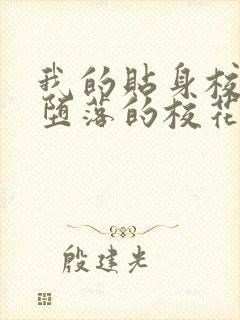 我的贴身校
堕落的校花
殷建光